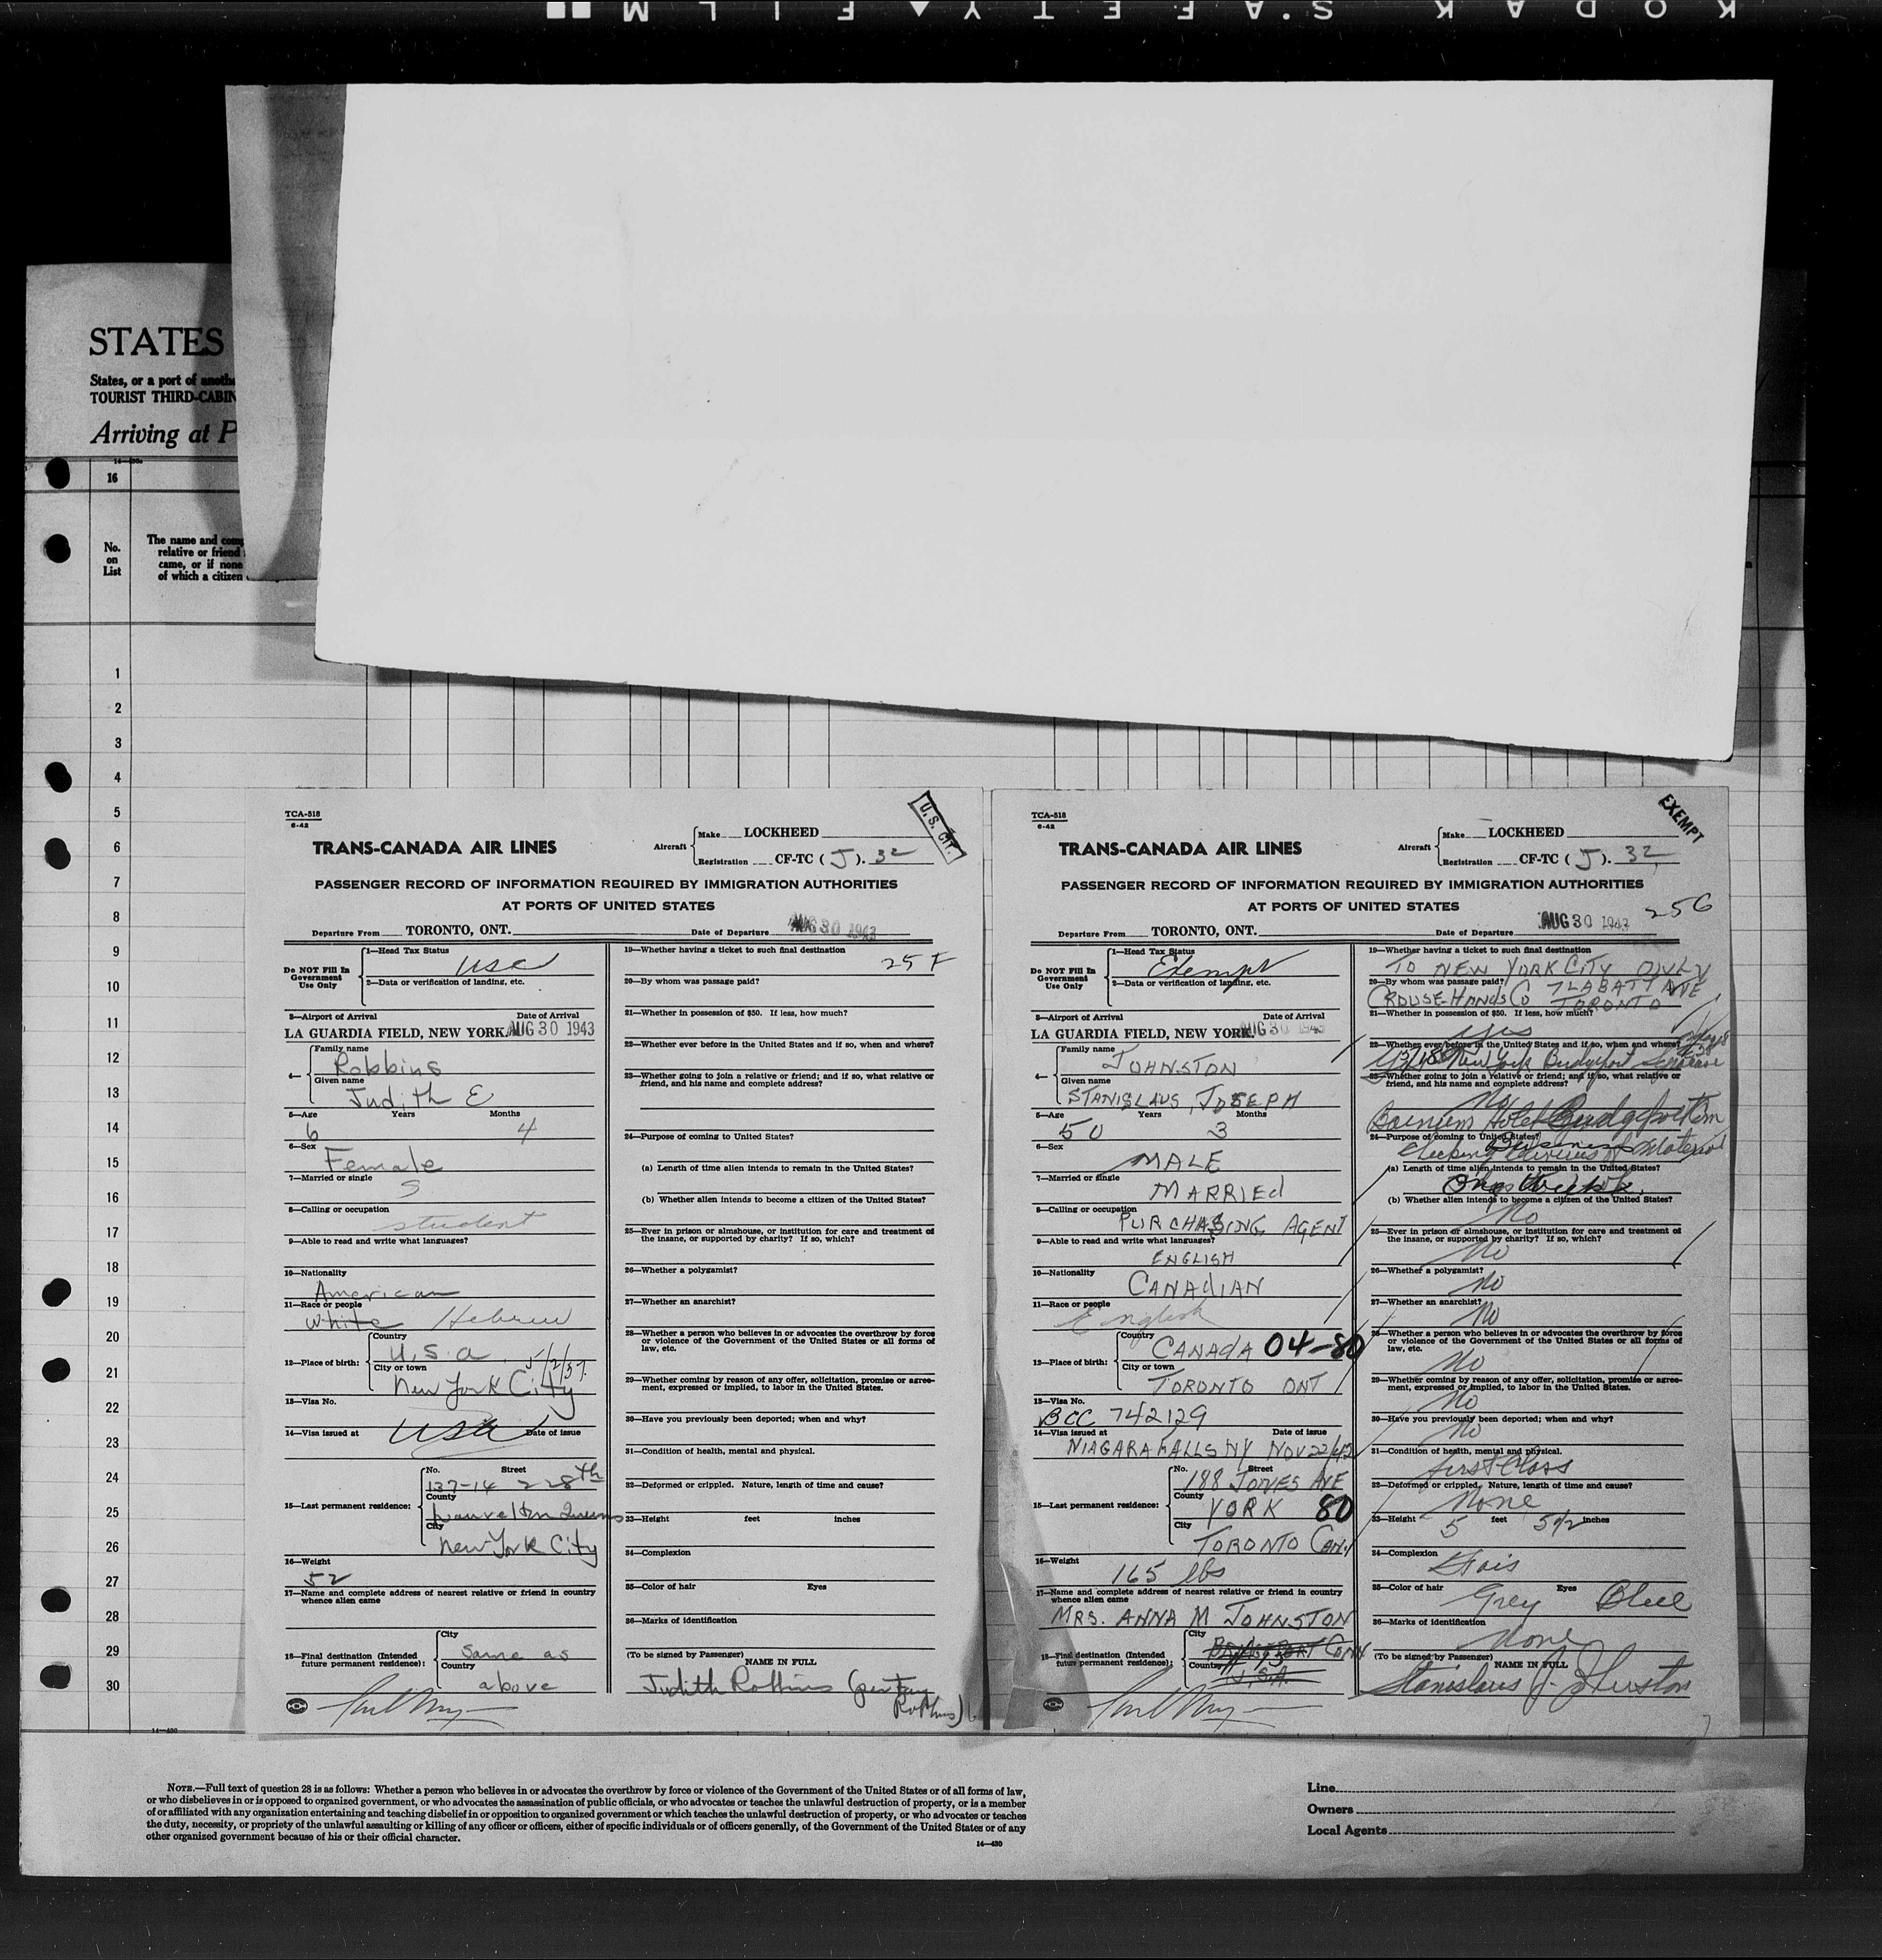 KODAK S'AFETY FILM
STATES
States, or a port of anoth
TOURIST THIRD-CABIN
Arriving at P
16
No.
on
List
The name and comp
relative or friend
came, or if none
of which a citizen
1
2
3
4
5
6
7
8
9
10
11
12
13
14
15
16
17
18
19
20
21
22
23
24
25
26
27
28
29
30
TCA-518
6-42
U.S. CIT.
TRANS-CANADA AIR LINES
Aircraft
Make LOCKHEED
Registration CF-TC ( J ). 32
PASSENGER RECORD OF INFORMATION REQUIRED BY IMMIGRATION AUTHORITIES
AT PORTS OF UNITED STATES
Departure From TORONTO, ONT. Date of Departure AUG 30 1943
Do NOT Fill In
Government
Use Only
1—Head Tax Status
USC
2—Data or verification of landing, etc.
3—Airport of Arrival Date of Arrival
LA GUARDIA FIELD, NEW YORK. AUG 30 1943
4—
Family name
Robbins
Given name
Judith E
5—Age Years Months
6 4
6—Sex
Female
7—Married or single
S
8—Calling or occupation
student
9—Able to read and write what languages?
10—Nationality
American
11—Race or people
white Hebrew
12—Place of birth:
Country
U.S.A. 5/2/37.
City or town
New York City
13—Visa No.
USA
14—Visa issued at Date of issue
15—Last permanent residence:
No. Street
137-14 228th
County
Laurelton Queens
City
New York City
16—Weight
52
17—Name and complete address of nearest relative or friend in country
whence alien came
18—Final destination (Intended
future permanent residence):
City
Same as
Country
above
19—Whether having a ticket to such final destination
25 F
20—By whom was passage paid?
21—Whether in possession of $50. If less, how much?
22—Whether ever before in the United States and if so, when and where?
23—Whether going to join a relative or friend; and if so, what relative or
friend, and his name and complete address?
24—Purpose of coming to United States?
(a) Length of time alien intends to remain in the United States?
(b) Whether alien intends to become a citizen of the United States?
25—Ever in prison or almshouse, or institution for care and treatment of
the insane, or supported by charity? If so, which?
26—Whether a polygamist?
27—Whether an anarchist?
28—Whether a person who believes in or advocates the overthrow by force
or violence of the Government of the United States or all forms of
law, etc.
29—Whether coming by reason of any offer, solicitation, promise or agree-
ment, expressed or implied, to labor in the United States.
30—Have you previously been deported; when and why?
31—Condition of health, mental and physical.
32—Deformed or crippled. Nature, length of time and cause?
33—Height feet inches
34—Complexion
35—Color of hair Eyes
36—Marks of identification
(To be signed by Passenger)
NAME IN FULL
Judith Robbins (per Fay
Robbins)
TCA-518
6-42
EXEMPT
TRANS-CANADA AIR LINES
Aircraft
Make LOCKHEED
Registration CF-TC ( J ). 32
PASSENGER RECORD OF INFORMATION REQUIRED BY IMMIGRATION AUTHORITIES
AT PORTS OF UNITED STATES
25G
Departure From TORONTO, ONT. Date of Departure AUG 30 1943
Do NOT Fill In
Government
Use Only
1—Head Tax Status
Exempt
2—Data or verification of landing, etc.
3—Airport of Arrival Date of Arrival
LA GUARDIA FIELD, NEW YORK. AUG 30 1943
4—
Family name
JOHNSTON
Given name
STANISLAUS, JOSEPH
5—Age Years Months
50 3
6—Sex
MALE
7—Married or single
MARRIED
8—Calling or occupation
PURCHASING AGENT
9—Able to read and write what languages?
ENGLISH
10—Nationality
CANADIAN
11—Race or people
English
12—Place of birth:
Country
CANADA 04-80
City or town
TORONTO ONT
13—Visa No.
BCC 742129
14—Visa issued at Date of issue
NIAGARA FALLS NY NOV 22/42
15—Last permanent residence:
No. Street
188 JONES AVE
County
YORK 80
City
TORONTO CAN.
16—Weight
165 lbs
17—Name and complete address of nearest relative or friend in country
whence alien came
MRS. ANNA M JOHNSTON
18—Final destination (Intended
future permanent residence):
City
BRIDGEPORT CONN
Country
U.S.A.
19—Whether having a ticket to such final destination
TO NEW YORK CITY ONLY
20—By whom was passage paid?
CROUSE-HINDS CO 7 LABATT AVE
TORONTO
21—Whether in possession of $50. If less, how much?
yes
22—Whether ever before in the United States and if so, when and where?
New York Bridgeport Syracuse
23—Whether going to join a relative or friend; and if so, what relative or
friend, and his name and complete address?
No
Barnum Hotel Bridgeport
24—Purpose of coming to United States?
Business
Checking deliveries of Material
(a) Length of time alien intends to remain in the United States?
One Week
(b) Whether alien intends to become a citizen of the United States?
No
25—Ever in prison or almshouse, or institution for care and treatment of
the insane, or supported by charity? If so, which?
No
26—Whether a polygamist?
No
27—Whether an anarchist?
No
28—Whether a person who believes in or advocates the overthrow by force
or violence of the Government of the United States or all forms of
law, etc.
No
29—Whether coming by reason of any offer, solicitation, promise or agree-
ment, expressed or implied, to labor in the United States.
No
30—Have you previously been deported; when and why?
No
31—Condition of health, mental and physical.
first Class
32—Deformed or crippled. Nature, length of time and cause?
None
33—Height feet inches
5 5 1/2
34—Complexion
Fair
35—Color of hair Eyes
Grey Blue
36—Marks of identification
None
(To be signed by Passenger)
NAME IN FULL
Stanislaus J. Johnston
14—430
NOTE.—Full text of question 28 is as follows: Whether a person who believes in or advocates the overthrow by force or violence of the Government of the United States or of all forms of law,
or who disbelieves in or is opposed to organized government, or who advocates the assassination of public officials, or who advocates or teaches the unlawful destruction of property, or is a member
of or affiliated with any organization entertaining and teaching disbelief in or opposition to organized government or which teaches the unlawful destruction of property, or who advocates or teaches
the duty, necessity, or propriety of the unlawful assaulting or killing of any officer or officers, either of specific individuals or of officers generally, of the Government of the United States or of any
other organized government because of his or their official character.
14—430
Line
Owners
Local Agents